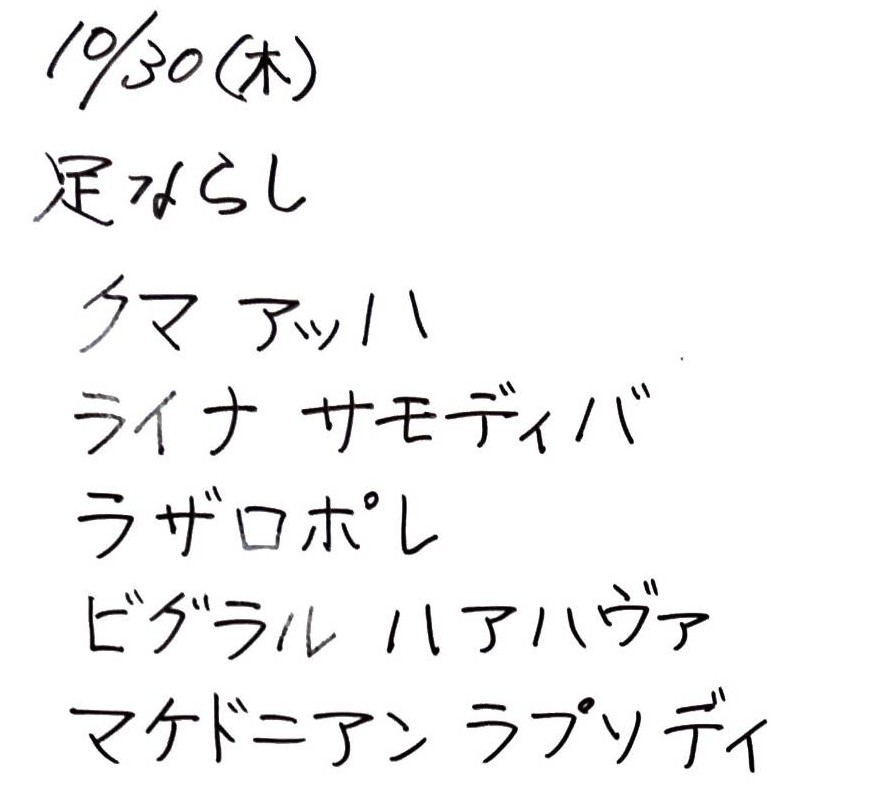 10/30(木)
足ならし
クマ アッハ
ライナ サモディバ
ラザロポレ
ビグラル ハアハヴァ
マケドニアン ラプソディ